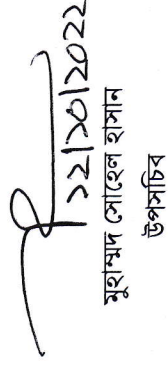 ১২/১০/২০২২
মুহাম্মদ সোহেল হাসান
উপসচিব